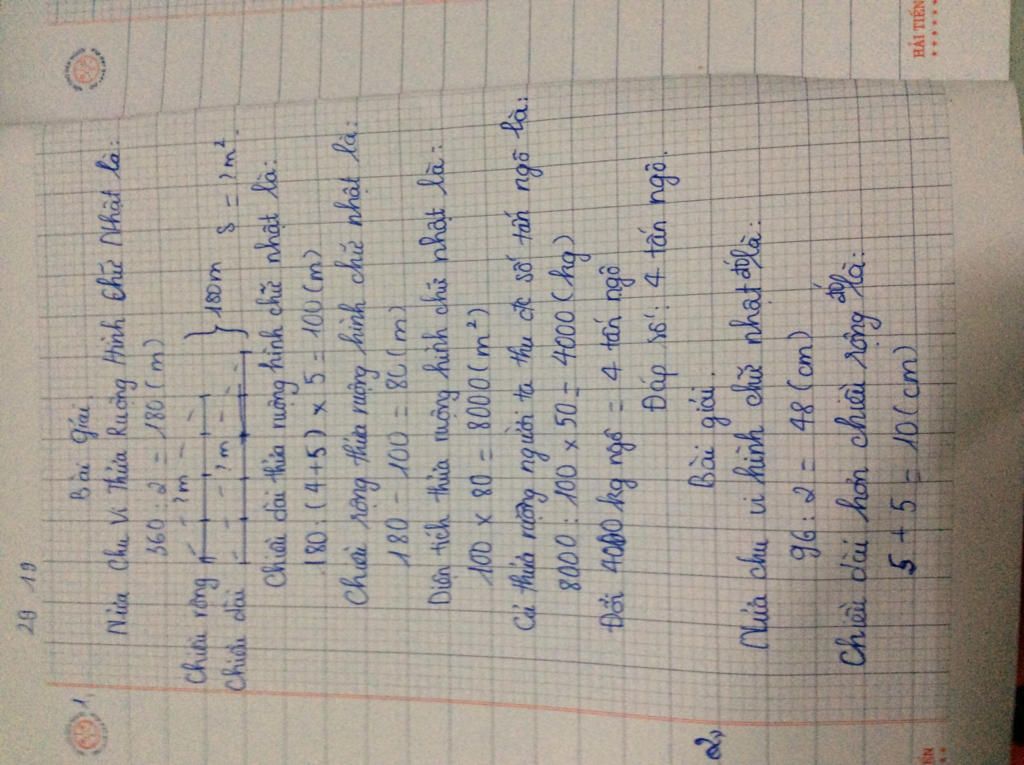 29 19
1,
Bài giải
Nửa chu vi thửa Ruộng Hình chữ Nhật là:
360 : 2 = 180 (m)
?m
Chiều rộng
?m } 180m S = ? m².
Chiều dài
Chiều dài thửa ruộng hình chữ nhật là:
180 : (4+5) x 5 = 100 (m)
Chiều rộng thửa ruộng hình chữ nhật là:
180 - 100 = 80 (m)
Diện tích thửa ruộng hình chữ nhật là:
100 x 80 = 8000 (m²)
Cả thửa ruộng người ta thu đc số tấn ngô là:
8000 : 100 x 50 = 4000 (kg)
Đổi 4000 kg ngô = 4 tấn ngô
Đáp số: 4 tấn ngô.
2,
Bài giải.
Nửa chu vi hình chữ nhật đó là:
96 : 2 = 48 (cm)
Chiều dài hơn chiều rộng đó là:
5 + 5 = 10 (cm)
HẢI TIẾN